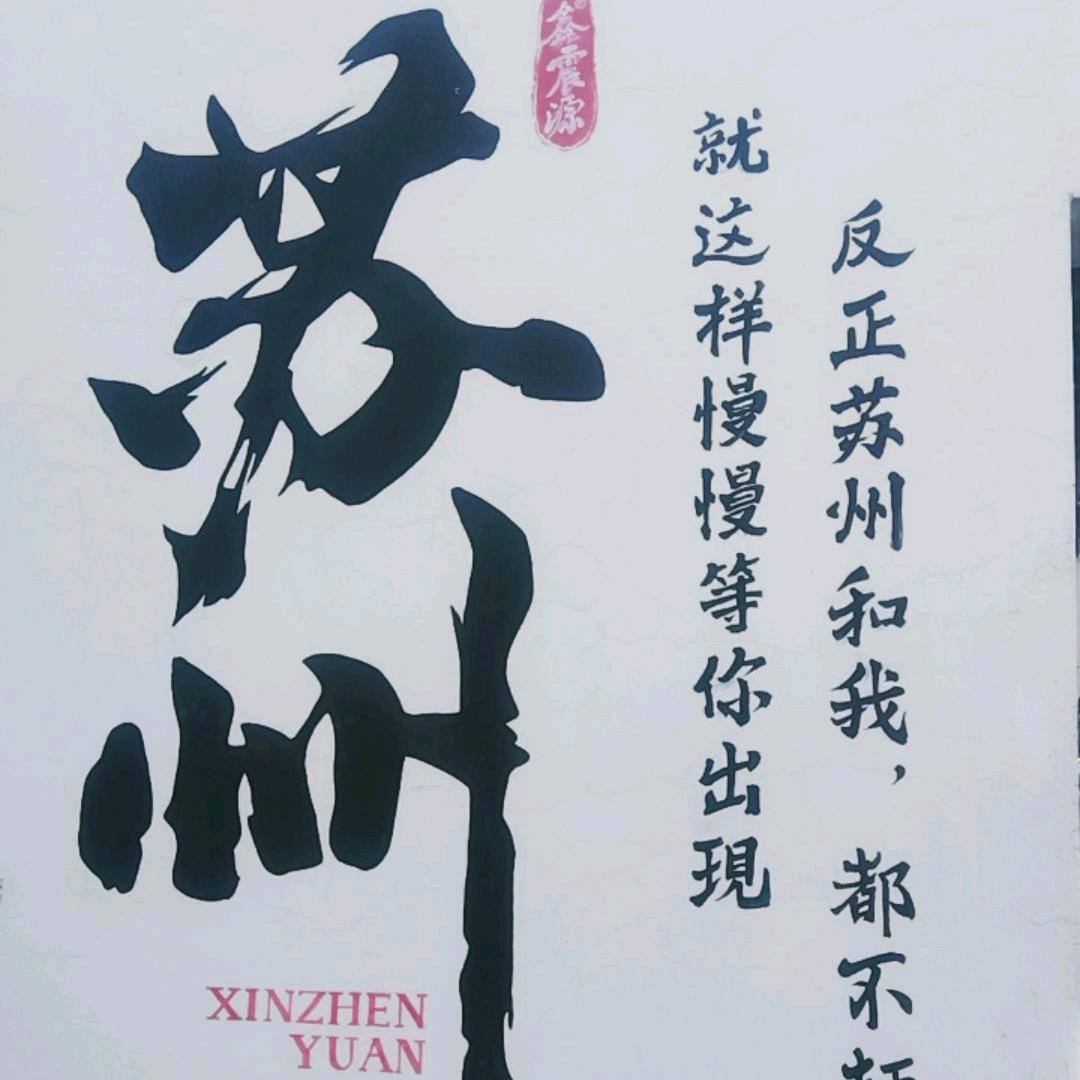 反正苏州和我，都不
就这样慢慢等你出現
鑫震源
苏州
XINZHEN
YUAN